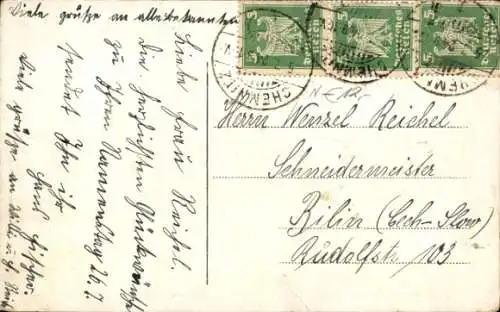 Viele grüße an alle bekannten
Liebe Frau Reichel.
Die herzlichsten Glückwünsche
zu Ihren Namenstag 26.7.
sendet Ihn ihr
Hans Fischer
Viele grüße an Willi u. s.
5 Deutsches Reich 5
5 Deutsches Reich 5
5 Deutsches Reich 5
CHEMNITZ
CHEMNITZ
CHEMNITZ
Herrn Wenzel Reichel
Schneidermeister
Bilin (Cech-Slow)
Rudolfstr 103